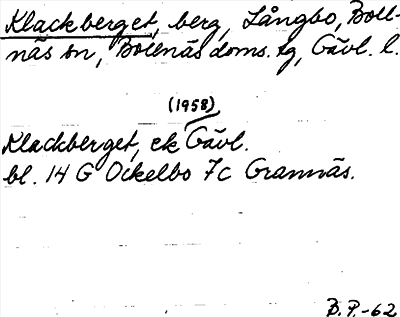 Klackberget, berg, Långbo, Boll-
näs sn, Bollnäs doms. tg, Gävl. l.
(1958)
Klackberget, ek Gävl.
bl. 14 G Ockelbo 7c Grannäs.
B.P.-62